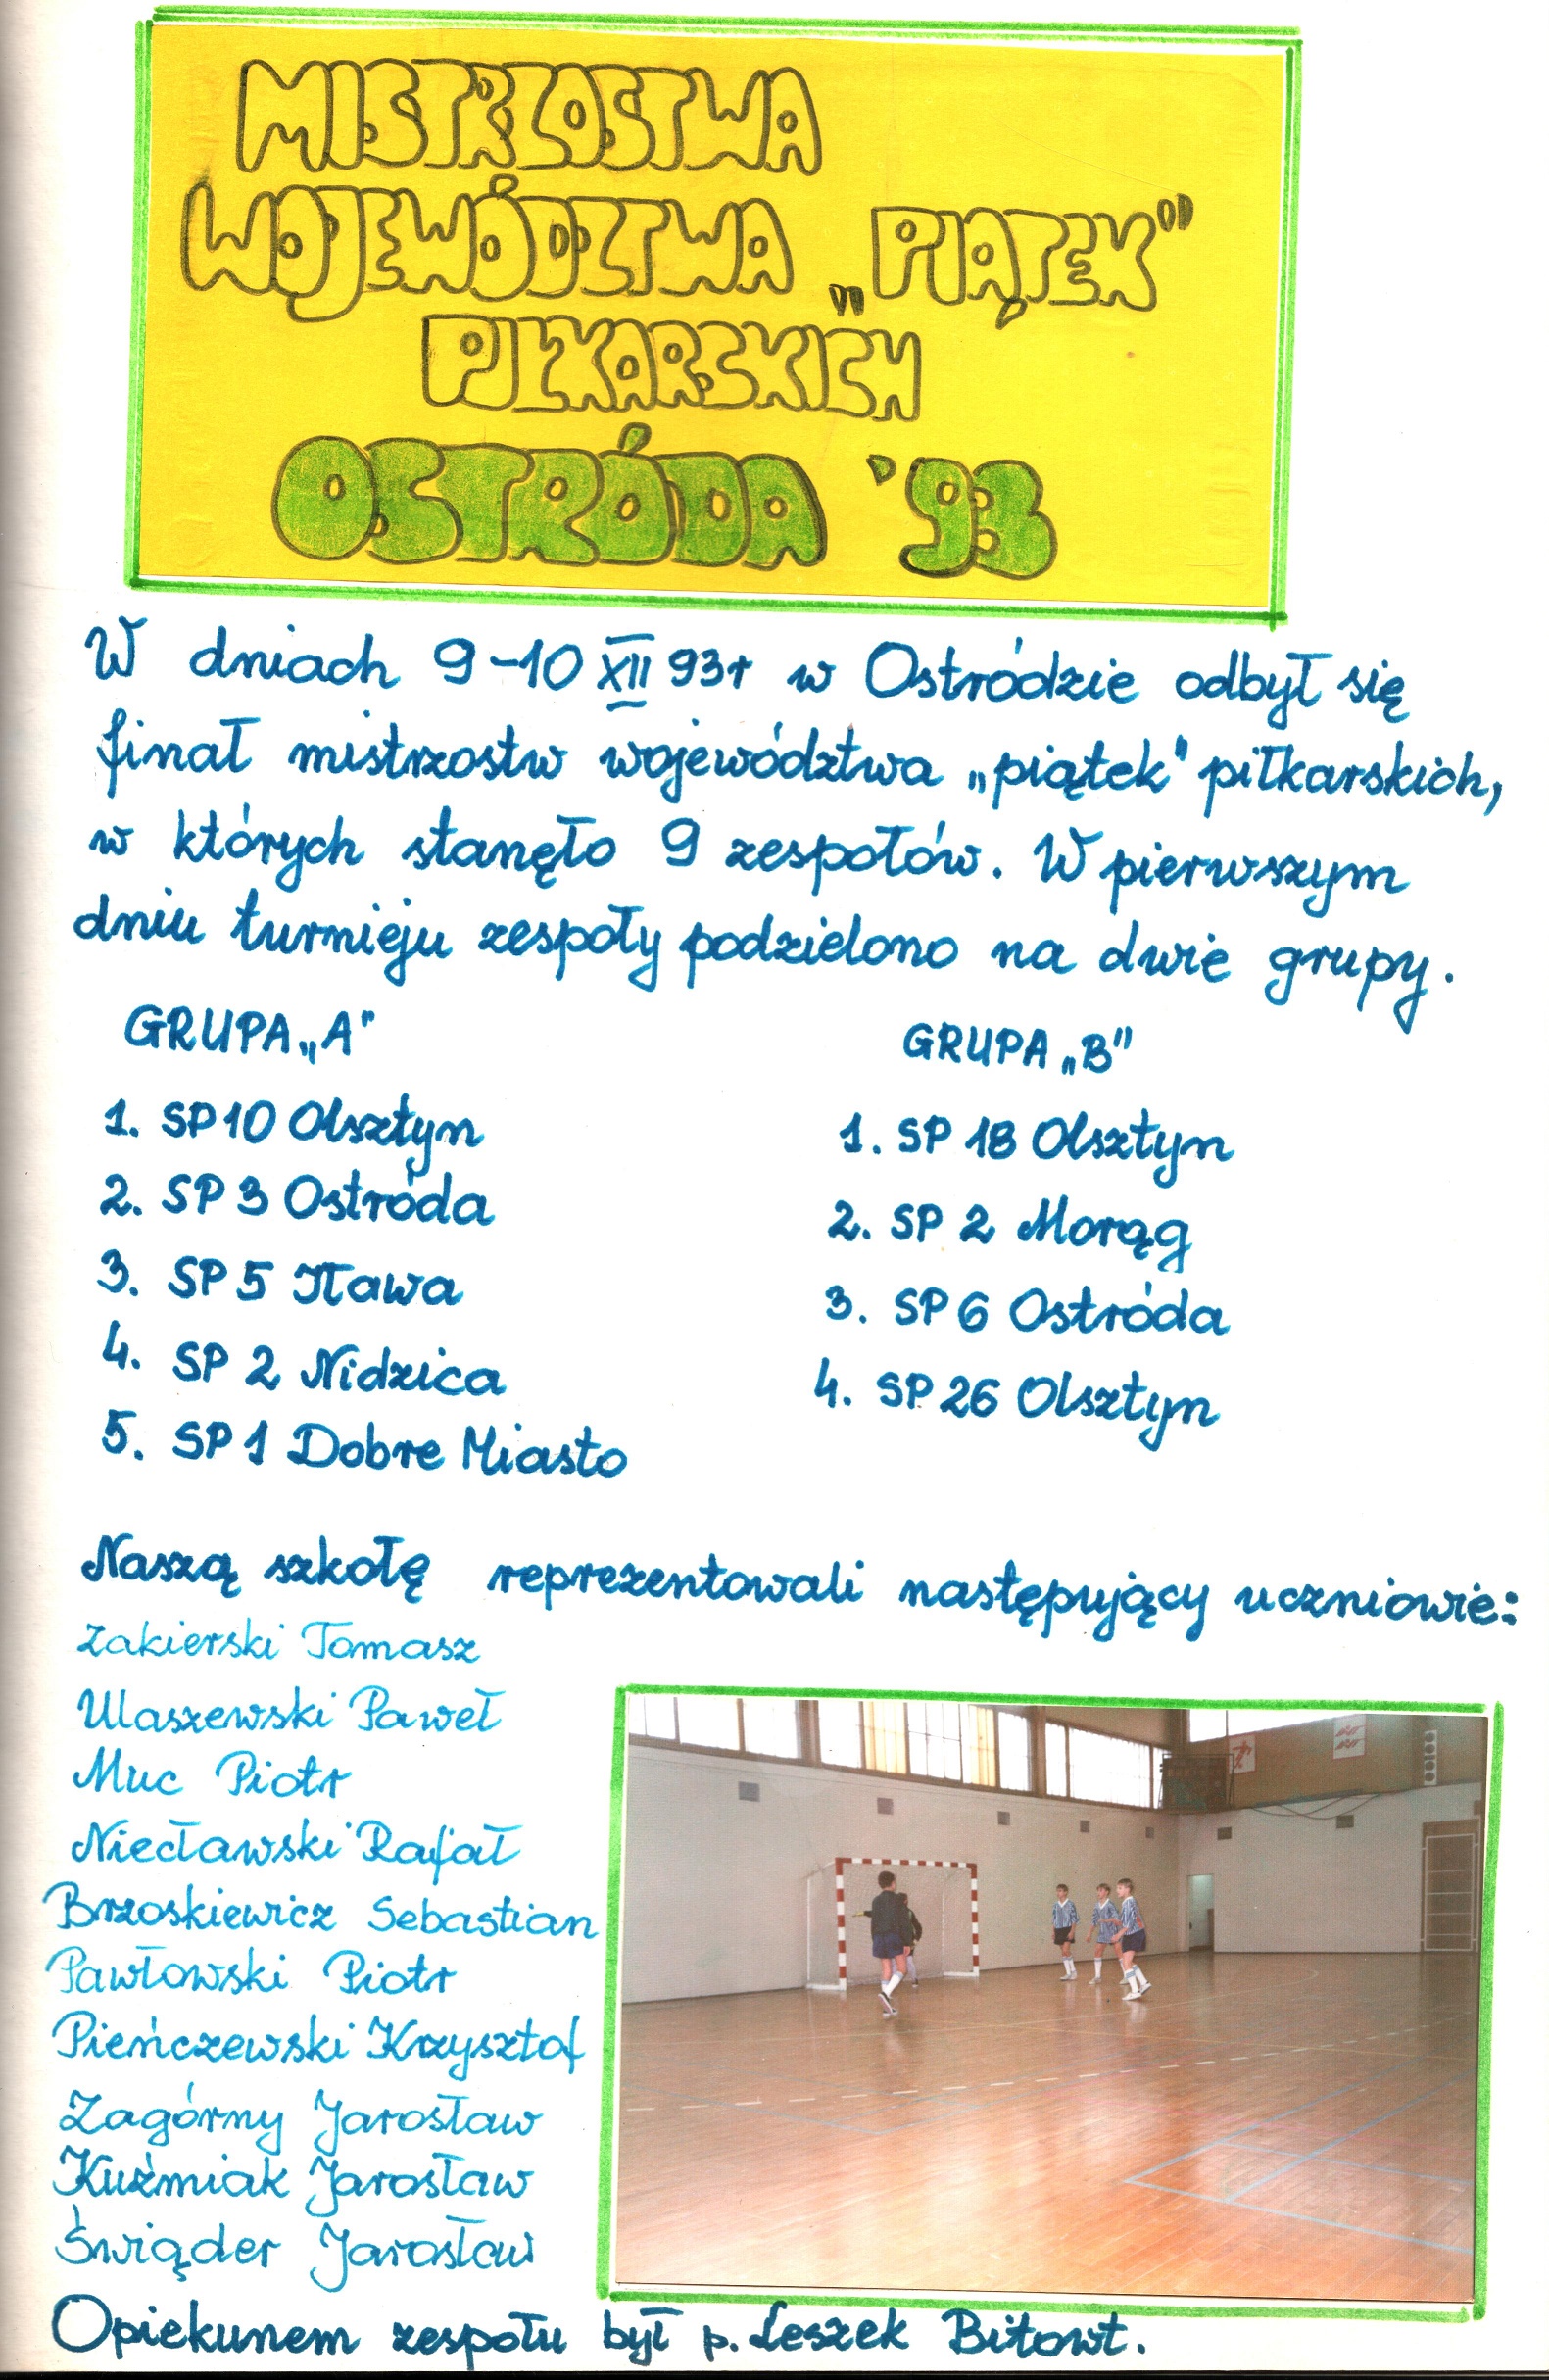 MISTRZOSTWA
WOJEWÓDZTWA „PIĄTEK"
PIŁKARSKICH
OSTRÓDA '93
W dniach 9-10 XII 93r w Ostródzie odbył się
finał mistrzostw województwa „piątek" piłkarskich,
w których stanęło 9 zespołów. W pierwszym
dniu turnieju zespoły podzielono na dwie grupy.
GRUPA „A"
1. SP 10 Olsztyn
2. SP 3 Ostróda
3. SP 5 Iława
4. SP 2 Nidzica
5. SP 1 Dobre Miasto
GRUPA „B"
1. SP 18 Olsztyn
2. SP 2 Morąg
3. SP 6 Ostróda
4. SP 26 Olsztyn
Naszą szkołę reprezentowali następujący uczniowie:
Zakierski Tomasz
Ulaszewski Paweł
Muc Piotr
Niecławski Rafał
Brzoskiewicz Sebastian
Pawłowski Piotr
Pieńczewski Krzysztof
Zagórny Jarosław
Kuźmiak Jarosław
Świąder Jarosław
Opiekunem zespołu był p. Leszek Bitowt.